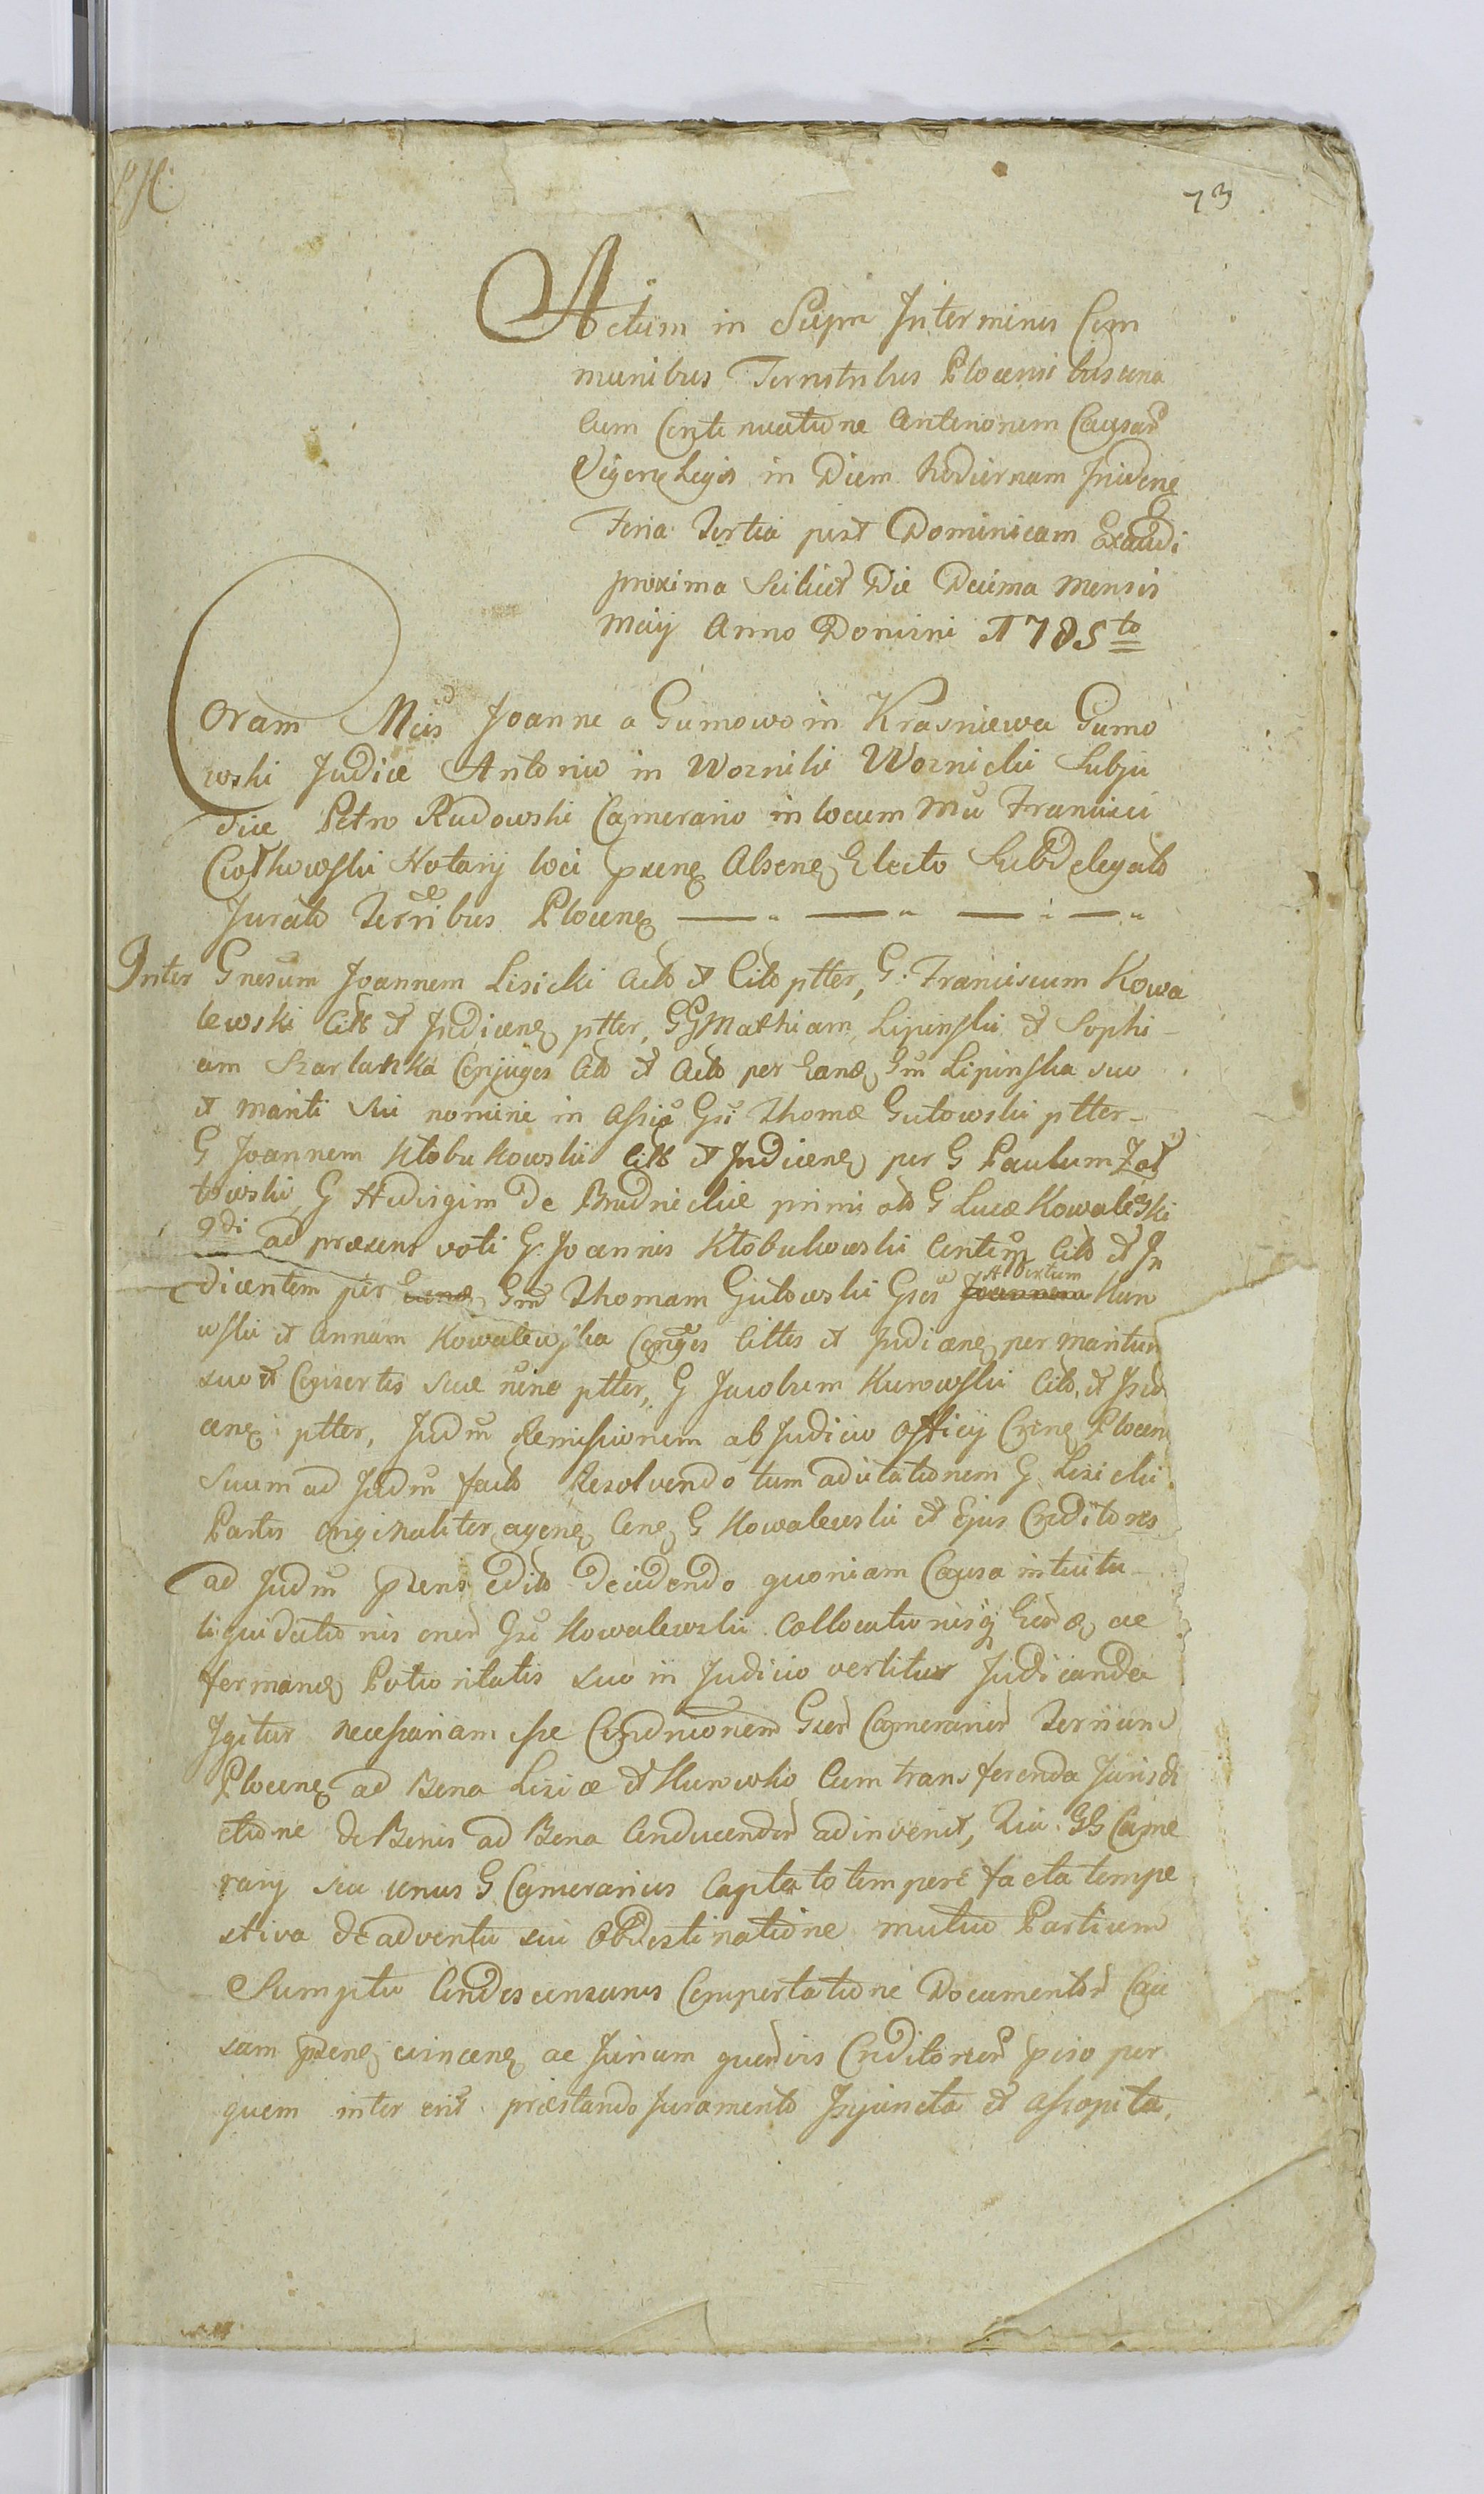 73
Actum in Supr Interminis Com
munibus Terrstribus Plocensibus una
Cum Continuatione Anteriorum Causar
Vigore Legis in Diem hodiernam Inidene
Feria Tertia post Dominicam Exaudi
proxima Scilicet Die Decima Mensis
Maij Anno Domini 1785to
Coram Mcis Joanne a Gumowo in Krasniewa Gumo
wski Judice Antonio in Wozniki Woznicki Subju
dice Petro Rudowski Camerario in locum Mci Francisci
Ciołkowski Notarij loci praene Absene Electo Subdelegato
Jurato Terribus Plocene
Inter Gnesum Joannem Lisicki Acto et Cito ptter, G. Franciscum Kowa
lewski Citt et Indicene ptter, GG Mathiam Lipinski et Sophi
am Szarlanka Conjuges Cito et Acto per Eande Gm Lipinska suo
et mariti sui nomine in Assia Gsi Thomae Gutowski ptter
G Joannem Kłobukowski Citt et Indicene per G Paulum Zoł
towski, G Hedvigim De Brudnickie primi oto G Lucae Kowaleski
2di ad praesens voti G. Joannis Kłobukowski Contem Cito et In
dicentem per Thomam Gutowski Gsos Albertum Kuro
wski et Annam Kowalewska Conges Cittes et Indicene per maritum
suo et Consortis suae nine ptter, G Jacobum Kurowski Cito, et Indi
cene ptter, Judm Remissionem ab Judicio Officij Crene Plocen
Suum ad Judm facto Resolvendo tum ad citationem G Lisicki
Partis originaliter agene Cone G Kowalewski et Ejus Creditores
ad Judm praens edito decidendo quoniam Causa intuitu
liquidationis oner Gsi Kowalewski Collocationisq Eord ae
fermane Potioritatis suo in Judicio vertitur Judicanda
Igitur necessariam esse Condnionem Gser Camerarior Terrium
Plocene ad Bona Lisice et Kurowko Cum transferenda Jurisdi
ctione de Bonis ad Bona Conducendor adinvenit, Qui GG Came
rarij seu unus G Camerarius Captato tempore facta tempe
stiva de adventu sui Obdestinatione mutuo Partium
Sumptu Condescensuros Comportatione Documentor Cau
sam praene evincene ac Jurium quorvis Creditorum piso per
quem inter erit praestando Juramento Injuncta et assopita,